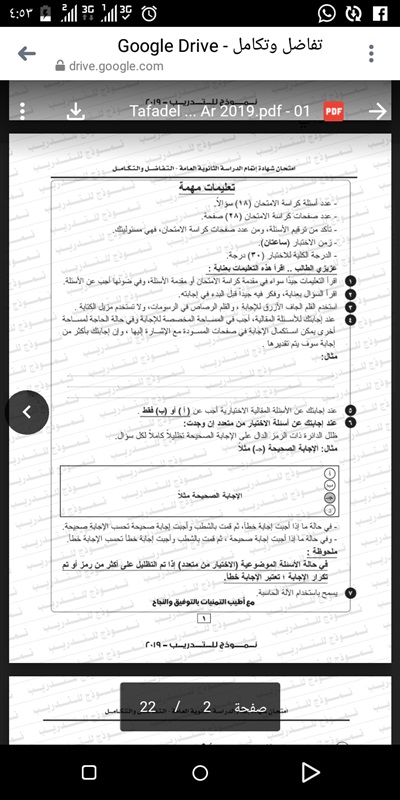 ٤:٥٣ 2 3G 1 3G
تفاضل وتكامل - Google Drive
drive.google.com
نمـــوذج للتـــدريـــب – ٢٠١٩
01 - Tafadel ... Ar 2019.pdf PDF
امتحان شهادة إتمام الدراسة الثانوية العامة - التفاضل والتكامل
تعليمات مهمة
- عدد أسئلة كراسة الامتحان (١٨) سؤالاً.
- عدد صفحات كراسة الامتحان (٢٨) صفحة.
- تأكد من ترقيم الأسئلة، ومن عدد صفحات كراسة الامتحان، فهي مسئوليتك.
- زمن الاختبار (ساعتان).
- الدرجة الكلية للاختبار (٣٠) درجة.
عزيزي الطالب .. اقرأ هذه التعليمات بعناية :
١ اقرأ التعليمات جيدًا سواء في مقدمة كراسة الامتحان أو مقدمة الأسئلة، وفي ضوئها أجب عن الأسئلة.
٢ اقرأ السؤال بعناية، وفكر فيه جيدًا قبل البدء في إجابته.
٣ استخدم القلم الجاف الأزرق للإجابة ، والقلم الرصاص في الرسومات، ولا تستخدم مزيل الكتابة.
٤ عند إجابتك للأسئلة المقالية، أجب في المساحة المخصصة للإجابة وفي حالة الحاجة لمساحة
أخرى يمكن استكمال الإجابة في صفحات المسودة مع الإشارة إليها ، وإن إجابتك بأكثر من
إجابة سوف يتم تقديرها.
مثال:
٥ عند إجابتك عن الأسئلة المقالية الاختيارية أجب عن (أ) أو (ب) فقط .
٦ عند إجابتك عن أسئلة الاختيار من متعدد إن وجدت:
ظلل الدائرة ذات الرمز الدال على الإجابة الصحيحة تظليلاً كاملاً لكل سؤال.
مثال: الإجابة الصحيحة (جـ) مثلاً
أ
ب
جـ الإجابة الصحيحة مثلاً
د
- في حالة ما إذا أجبت إجابة خطأ، ثم قمت بالشطب وأجبت إجابة صحيحة تحسب الإجابة صحيحة.
- وفي حالة ما إذا أجبت إجابة صحيحة ، ثم قمت بالشطب وأجبت إجابة خطأ تحسب الإجابة خطأ.
ملحوظة :
في حالة الأسئلة الموضوعية (الاختيار من متعدد) إذا تم التظليل على أكثر من رمز أو تم
تكرار الإجابة ؛ تعتبر الإجابة خطأ.
٧ يسمح باستخدام الآلة الحاسبة.
مع أطيب التمنيات بالتوفيق والنجاح
١
نمـــوذج للتـــدريـــب – ٢٠١٩
صفحة 2 / 22